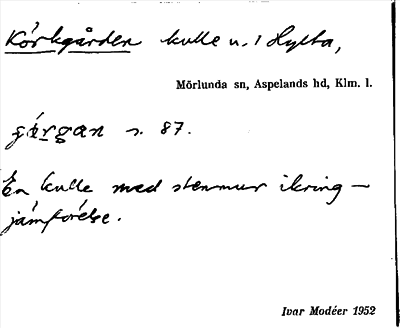 Körkgården kulle u. 1 Hylta,
Mörlunda sn, Aspelands hd, Klm. l.
s. 87.
En kulle med stenmur ikring —
jämförelse.
Ivar Modéer 1952